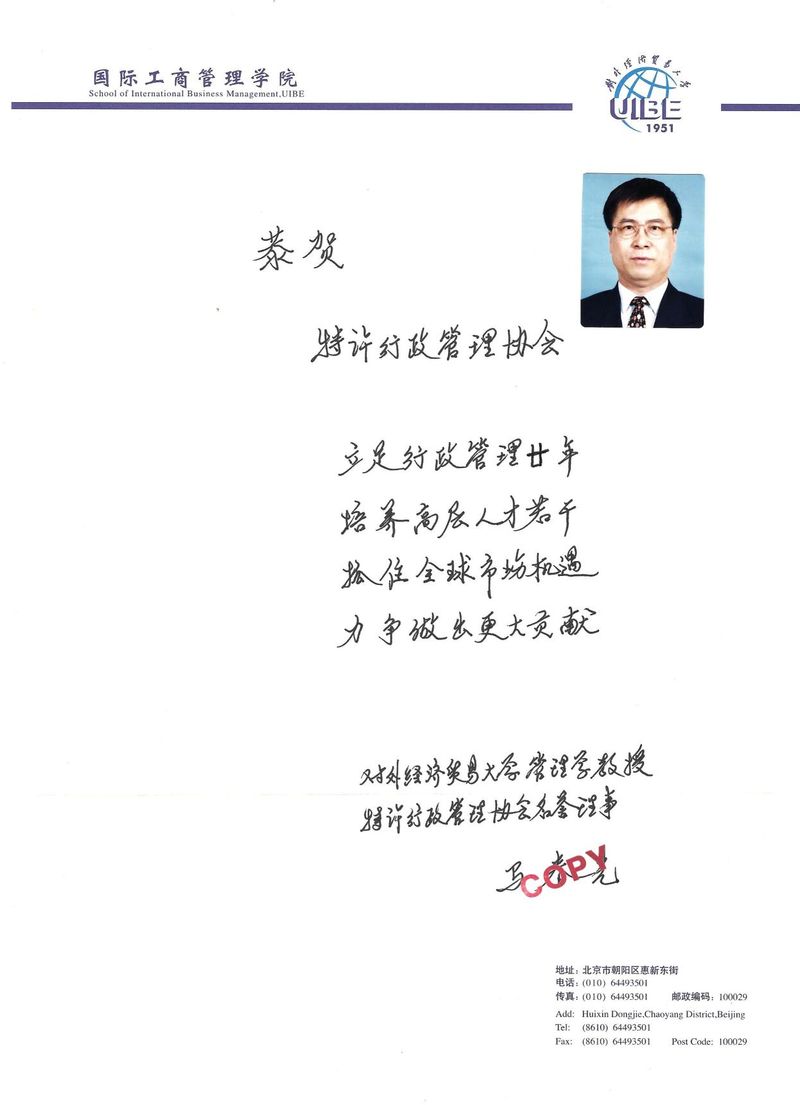 国际工商管理学院
School of International Business Management,UIBE
对外经济贸易大学
UIBE
1951
恭贺
特许行政管理协会
立足行政管理廿年
培养高层人才若干
抓住全球市场机遇
力争做出更大贡献
对外经济贸易大学管理学教授
特许行政管理协会名誉理事
马春光
COPY
地址：北京市朝阳区惠新东街
电话：(010) 64493501
传真：(010) 64493501 邮政编码：100029
Add: Huixin Dongjie,Chaoyang District,Beijing
Tel: (8610) 64493501
Fax: (8610) 64493501 Post Code: 100029